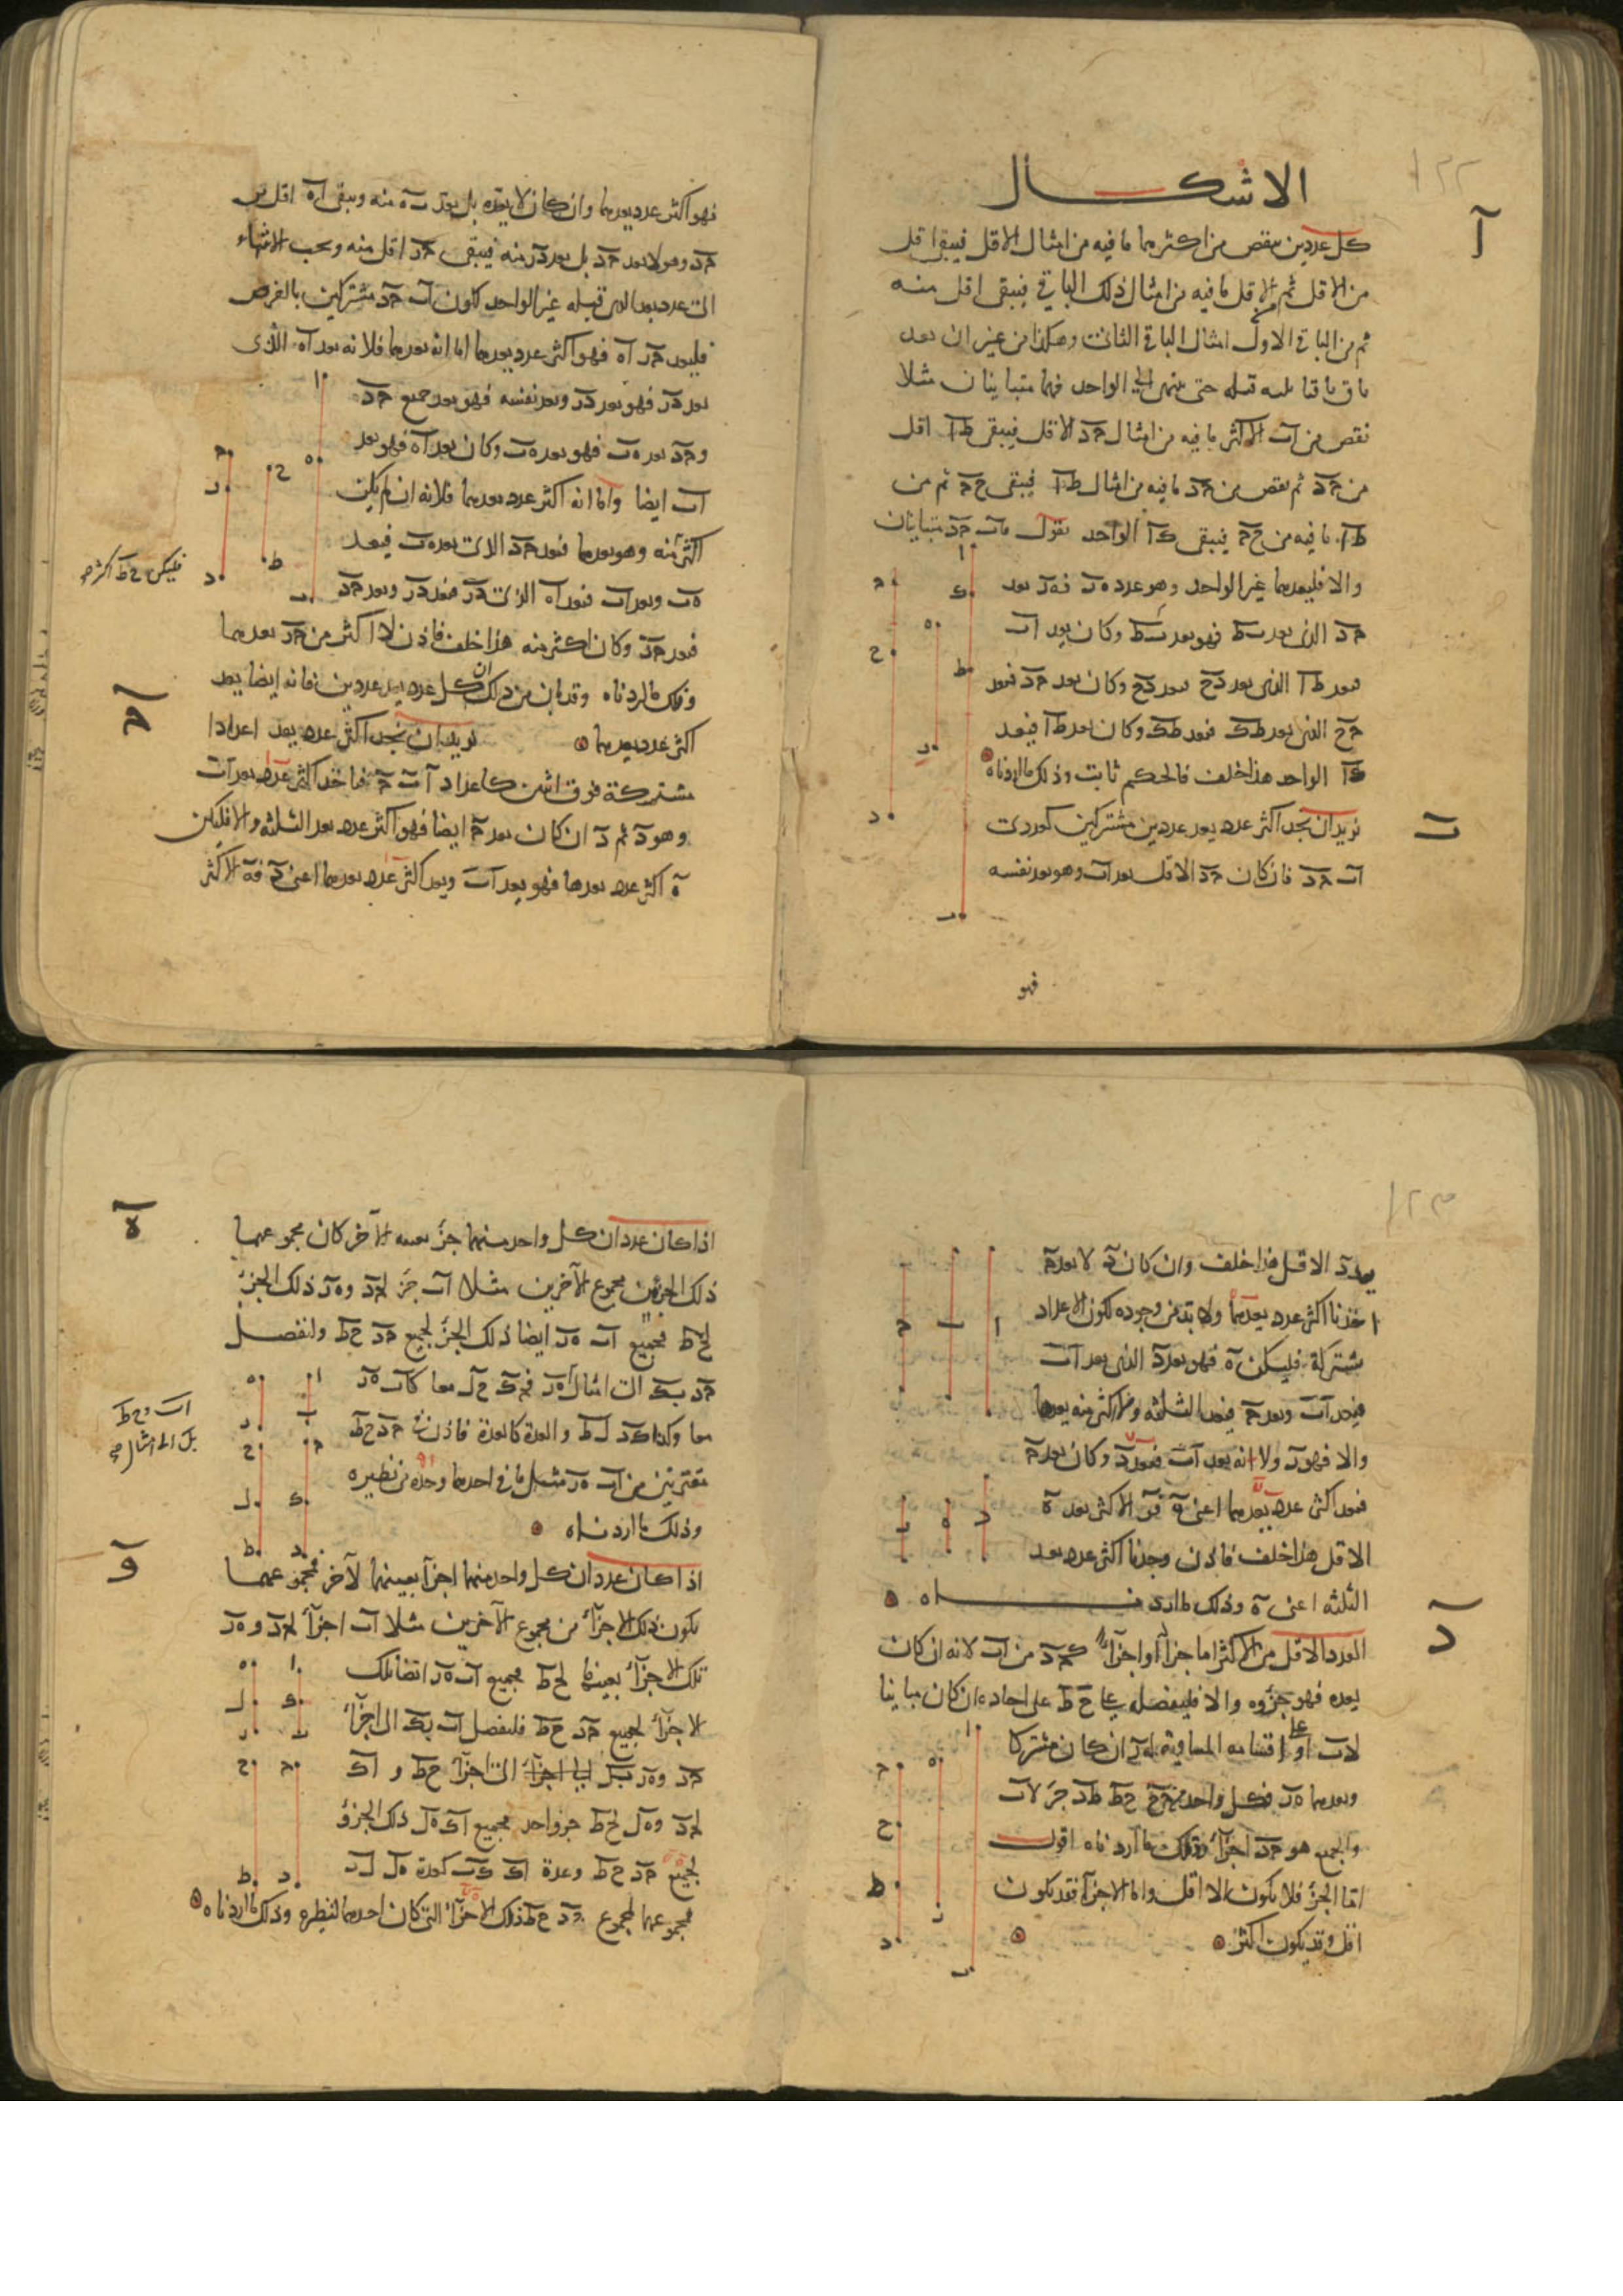 الاشكال
آ
كل عددين ينقص من اكثرهما ما فيه من امثال الاقل فيبقى اقل
من الاقل ثم من الاقل ما فيه من امثال ذلك الباقي فيبقى اقل منه
ثم من الباقي الاول امثال الباقي الثاني وهكذا من غير ان يعد
باق ما قبله حتى ينتهي الى الواحد فهما متباينان مثلا
نقص من اب الاكثر ما فيه من امثال حد الاقل فيبقى طا اقل
من حد ثم نقص من حد ما فيه من امثال طا فيبقى حح ثم من
طا ما فيه من حح فيبقى كا الواحد نقول فاب حد متباينان
والا فليعدهما غير الواحد وهو عدد ه ر فه ر يعد
حد الذي يعد ب ط فهو يعد ب ط وكان يعد اب
فيعد طا الذي يعد دح فيعد دح وكان يعد حد فيعد
حح الذي يعد طك فيعد طك وكان يعد طا فيعد
كا الواحد هذا خلف فالحكم ثابت وذلك ما اردناه
ب
نريد ان نجد اكثر عدد يعد عددين مشتركين كعددي
اب حد فان كان حد الاقل يعد اب وهو يعد نفسه
فهو
فهو اكثر عدد يعدهما وان كان لا يعده بل يعد ب ه منه ويبقى ا ه اقل من
حد وهو لا يعد حد بل يعد در منه فيبقى حر اقل منه ويجب الانتهاء
الى عدد يعد الذي قبله غير الواحد لكون اب حد مشتركين بالفرض
فليعد حر ا ه فهو اكثر عدد يعدهما اما انه يعدهما فلانه يعد ا ه الذي
يعد در فهو يعد در ويعد نفسه فهو يعد جميع حد
وحد يعد ه ب فهو يعد ه ب وكان يعد ا ه فهو يعد
اب ايضا واما انه اكثر عدد يعدهما فلانه ان لم يكن
اكثر منه وهو يعدهما فيعد حد الذي يعد ه ب فيعد
فليكن ح ط اكثر
ه ب ويعد اب فيعد ا ه الذي يعد در فيعد در ويعد حد
فيعد حر وكان اكثر منه هذا خلف فاذن لا اكثر من حر يعدهما
وذلك ما اردناه وقد بان من ذلك ان كل عدد يعد عددين فانه ايضا يعد
اكثر عدد يعدهما
ح
نريد ان نجد اكثر عدد يعد اعدادا
مشتركة فوق اثنين كاعداد ا ب ح فناخذ اكثر عدد يعد ا ب
وهو د ثم د ان كان يعد ح ايضا فهو اكثر عدد يعد الثلثة والا فليكن
ه اكثر عدد يعدها فهو يعد ا ب ويعد اكثر عدد يعدهما اعني د فه الاكثر
يعد د الاقل هذا خلف وان كان د لا يعد ح
اخذنا اكثر عدد يعدهما ولا بد من وجوده لكون الاعداد
مشتركة فليكن ه فهو يعد د الذي يعد ا ب
فيعد ا ب ويعد ح فيعد الثلثة ولا اكثر منه يعدها
والا فهو ر ولانه يعد ا ب فيعد د وكان يعد ح
فيعد اكثر عدد يعدهما اعني ه فر الاكثر يعد ه
الاقل هذا خلف فاذن وجدنا اكثر عدد يعد
الثلثة اعني ه وذلك ما اردناه
د
العدد الاقل من الاكثر اما جزء او اجزاء كحد من اب لانه ان كان
يعده فهو جزؤه والا فليفصل على ح ط على احاده ان كان مباينا
لاب او على اقسامه المساوية له ر ان كان مشتركا
ويعدهما ه ر فكل واحد من حح ح ط ط د جزء لاب
والجميع هو حد اجزاء وذلك ما اردناه اقول
اما الجزء فلا يكون الا اقل واما الاجزاء فقد يكون
اقل وقد يكون اكثر
ه
اذا كان عددان كل واحد منهما جزء بعينه لآخر كان مجموعهما
ذلك الجزء من مجموع الآخرين مثلا اب جزء لحد و ه ر ذلك الجزء
لح ط فجميع اب ه ر ايضا ذلك الجزء لجميع حد ح ط ولنفصل
حد بك الى امثال اب ه ر فحك ح ل معا كاب ه ر
اب و ح ط
بل الى امثال ه ر
معا وكذا ك د ل ط والعدة كالعدة فاذن في حد ح ط
مقترنين من اب ه ر مثل ما في احدهما وحده من نظيره
وذلك ما اردناه
و
اذا كان عددان كل واحد منهما اجزاء بعينها لآخر فمجموعهما
يكون ذلك الاجزاء من مجموع الآخرين مثلا اب اجزاء لحد و ه ر
تلك الاجزاء بعينها لح ط فجميع اب ه ر ايضا تلك
الاجزاء لجميع حد ح ط فلنفصل اب بك الى اجزاء
حد و ه ر بل الى اجزاء ح ط و اك
لحد و ه ل لح ط جزء واحد فجميع اك ه ل ذلك الجزء
لجميع حد ح ط وعدة اك ك ب كعدة ه ل ل ر
فمجموعهما لمجموع حد ح ط ذلك الاجزاء التي كان احدهما لنظيره وذلك ما اردناه